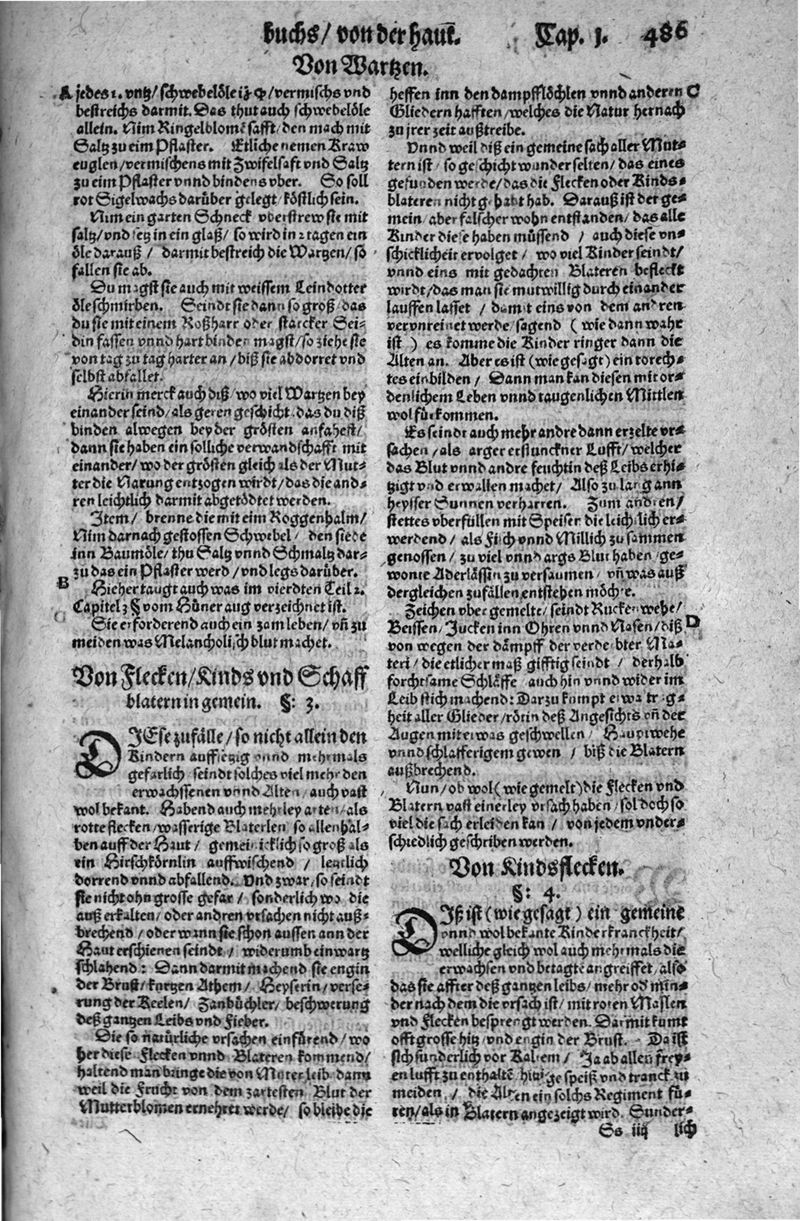 buchs/ von der haut. Cap. 1. 486
Von Wartzen.
A jedes 1. vntz/ schwebelöle vermischs vnd
bestreichs darmit. Das thut auch schwebelöle
allein. Nim Ringelblomē safft/ den mach mit
Saltz zu eim Pflaster. Etliche nemen Kraw
euglen/ vermischens mit Zwifelsaft vnd Saltz
zu eim Pflaster vnnd bindens vber. So soll
rot Sigelwachs darüber gelegt/ köstlich sein.
Nim ein garten Schneck vberstrew sie mit
saltz/ vnd setz in ein glaß/ so wird in 2 tagen ein
öle darauß/ darmit bestreich die Wartzen/ so
fallen sie ab.
Du magst sie auch mit weissem Leindotter
öle schmirben. Seindt sie dann so groß/ das
du sie mit einem Roßharr oder starcker Sei-
din fassen vnnd hart binden magst/ so ziehe sie
von tag zu tag harter an/ biß sie abdorret vnd
selbst abfallet.
Hierin merck auch diß/ wo viel Wartzen bey
einander seind/ als geren geschicht/ das du diß
binden alwegen bey der grösten anfahest/
dann sie haben ein solliche verwandschafft mit
einander/ wo der grösten gleich als der Mut-
ter die Narung entzogen wirdt/ das die and-
ren leichtlich darmit abgetödtet werden.
Item/ brenne die mit eim Roggenhalm/
Nim darnach gestossen Schwebel/ den siede
inn Baumöle/ thu Saltz vnnd Schmaltz dar-
zu das ein Pflaster werd/ vnd legs darüber.
B Hieher taugt auch was im vierdten Teil 2.
Capitel 3 § vom Hüner aug verzeichnet ist.
Sie erforderend auch ein zam leben/ vn̄ zu
meiden was Melancholisch blut machet.
Von Flecken/ Kinds vnd Schaff
blatern in gemein. §: 3.
DIese zufäle/ so nicht allein den
Kindern auffsetzig vnnd mehrmals
gefarlich seindt solches viel mehr den
erwachssenen vnnd Alten/ auch vast
wol bekant. Habend auch mehrley arten/ als
rotte flecken/ wasserige Blaterlen/ so allenhal-
ben auff der Haut/ gemeinicklich so groß als
ein Hirschkörnlin auffwischend/ letzlich
dorrend vnnd abfallend. Vnd zwar/ so seindt
sie nicht ohn grosse gefar/ sonderlich wo die
auß erkalten/ oder andren vrsachen nicht auß-
brechend/ oder wann sie schon aussen ann der
Haut erschienen seindt/ widerumb einwartz
schlahend: Dann darmit machend sie engin
der Brust/ kurtzen Athem/ Heyserin/ verse-
rung der Keelen/ Zanbüchler/ beschwerung
deß gantzen Leibs vnd Fieber.
Die so natürliche vrsachen einfürend/ wo
her diese Flecken vnnd Blateren kommend/
haltend man bringe die von Muter leib dann
weil die Frucht von dem zartesten Blut der
Mutterblomen ernehret werde/ so bleibe die
heffen inn den dampfflöchlen vnnd anderen C
Gliedern hafften/ welches die Natur hernach
zu jrer zeit außtreibe.
Vnnd weil diß ein gemeine sach aller Mut-
tern ist/ so geschicht wunder selten/ das eines
gefunden werde/ das die Flecken oder Kinds-
blateren nicht gehabt hab. Darauß ist der ge-
mein/ aber falscher wohn entstanden/ das alle
Kinder diese haben müssend/ auch diese vn-
schicklicheit ervolget/ wo viel Kinder seindt/
vnnd eins mit gedachten Blateren befleckt
wirdt/ das man sie mutwillig durch einander
lauffen lasset/ damit eins von dem andren
verunreinet werde/ sagend (wie dann wahr
ist) es komme die Kinder ringer dann die
Alten an. Aber es ist (wie gesagt) ein torech-
tes einbilden/ Dann man kan diesen mit or-
denlichem Leben vnnd taugenlichen Mittlen
wol fürkommen.
Es seindt auch mehr andre dann erzelte vr-
sachen/ als arger erstunckner Lufft/ welcher
das Blut vnnd andre feuchtin deß Leibs erhi-
tzigt vnd erwallen machet/ Also zu lang ann
heysser Sunnen verharren. Zum andren/
stettes vberfüllen mit Speiser die leichtlich er-
werdend/ als Fisch vnnd Millich zusammen
genossen/ zu viel vnnd args Blut haben/ ge-
wonte Aderlässin zu versaumen/ vn̄ was auß
dergleichen zufällen entstehen möchte.
Zeichen vber gemelte/ seindt Rucken wehe/
Beissen/ Jucken inn Ohren vnnd Nasen/ diß D
von wegen der dämpff der verderbter Ma-
teri/ die etlicher maß gifftig seindt/ derhalb
forchtsame Schläffe auch hin vnnd wider im
Leib stich machend: Darzu kompt etwa treg-
heit aller Glieder/ rötin deß Angesichts vn̄ der
Augen mit etwas geschwellen/ Hauptwehe
vnnd schlafferigem gewen/ biß die Blatern
außbrechend.
Nun/ ob wol (wie gemelt) die Flecken vnd
Blatern vast einerley vrsach haben/ sol doch so
viel die sach erleiden kan/ von jedem vnder-
schiedlich geschriben werden.
Von Kindsflecken.
§: 4.
DIß ist (wie gesagt) ein gemeine
vnnd wol bekante Kinderkranckheit/
welliche gleich wol auch mehrmals die
erwachsen vnd betagte angreiffet/ also
das sie affter deß gantzen leibs/ mehr od min-
der nach dem die vrsach ist/ mit roten Maslen
vnd Flecken besprengt werden. Darmit kumt
offt grosse hitz vnd engin der Brust. Da ist
sich sunderlich vor Kaltem/ Ja ab allen frey-
en lufft zu enthaltē hitzige speiß vnd tranck zu
meiden/ die Alten ein solchs Regiment fü-
ren/ als in Blatern angezeigt wird. Sunder-
Ss iiij lich